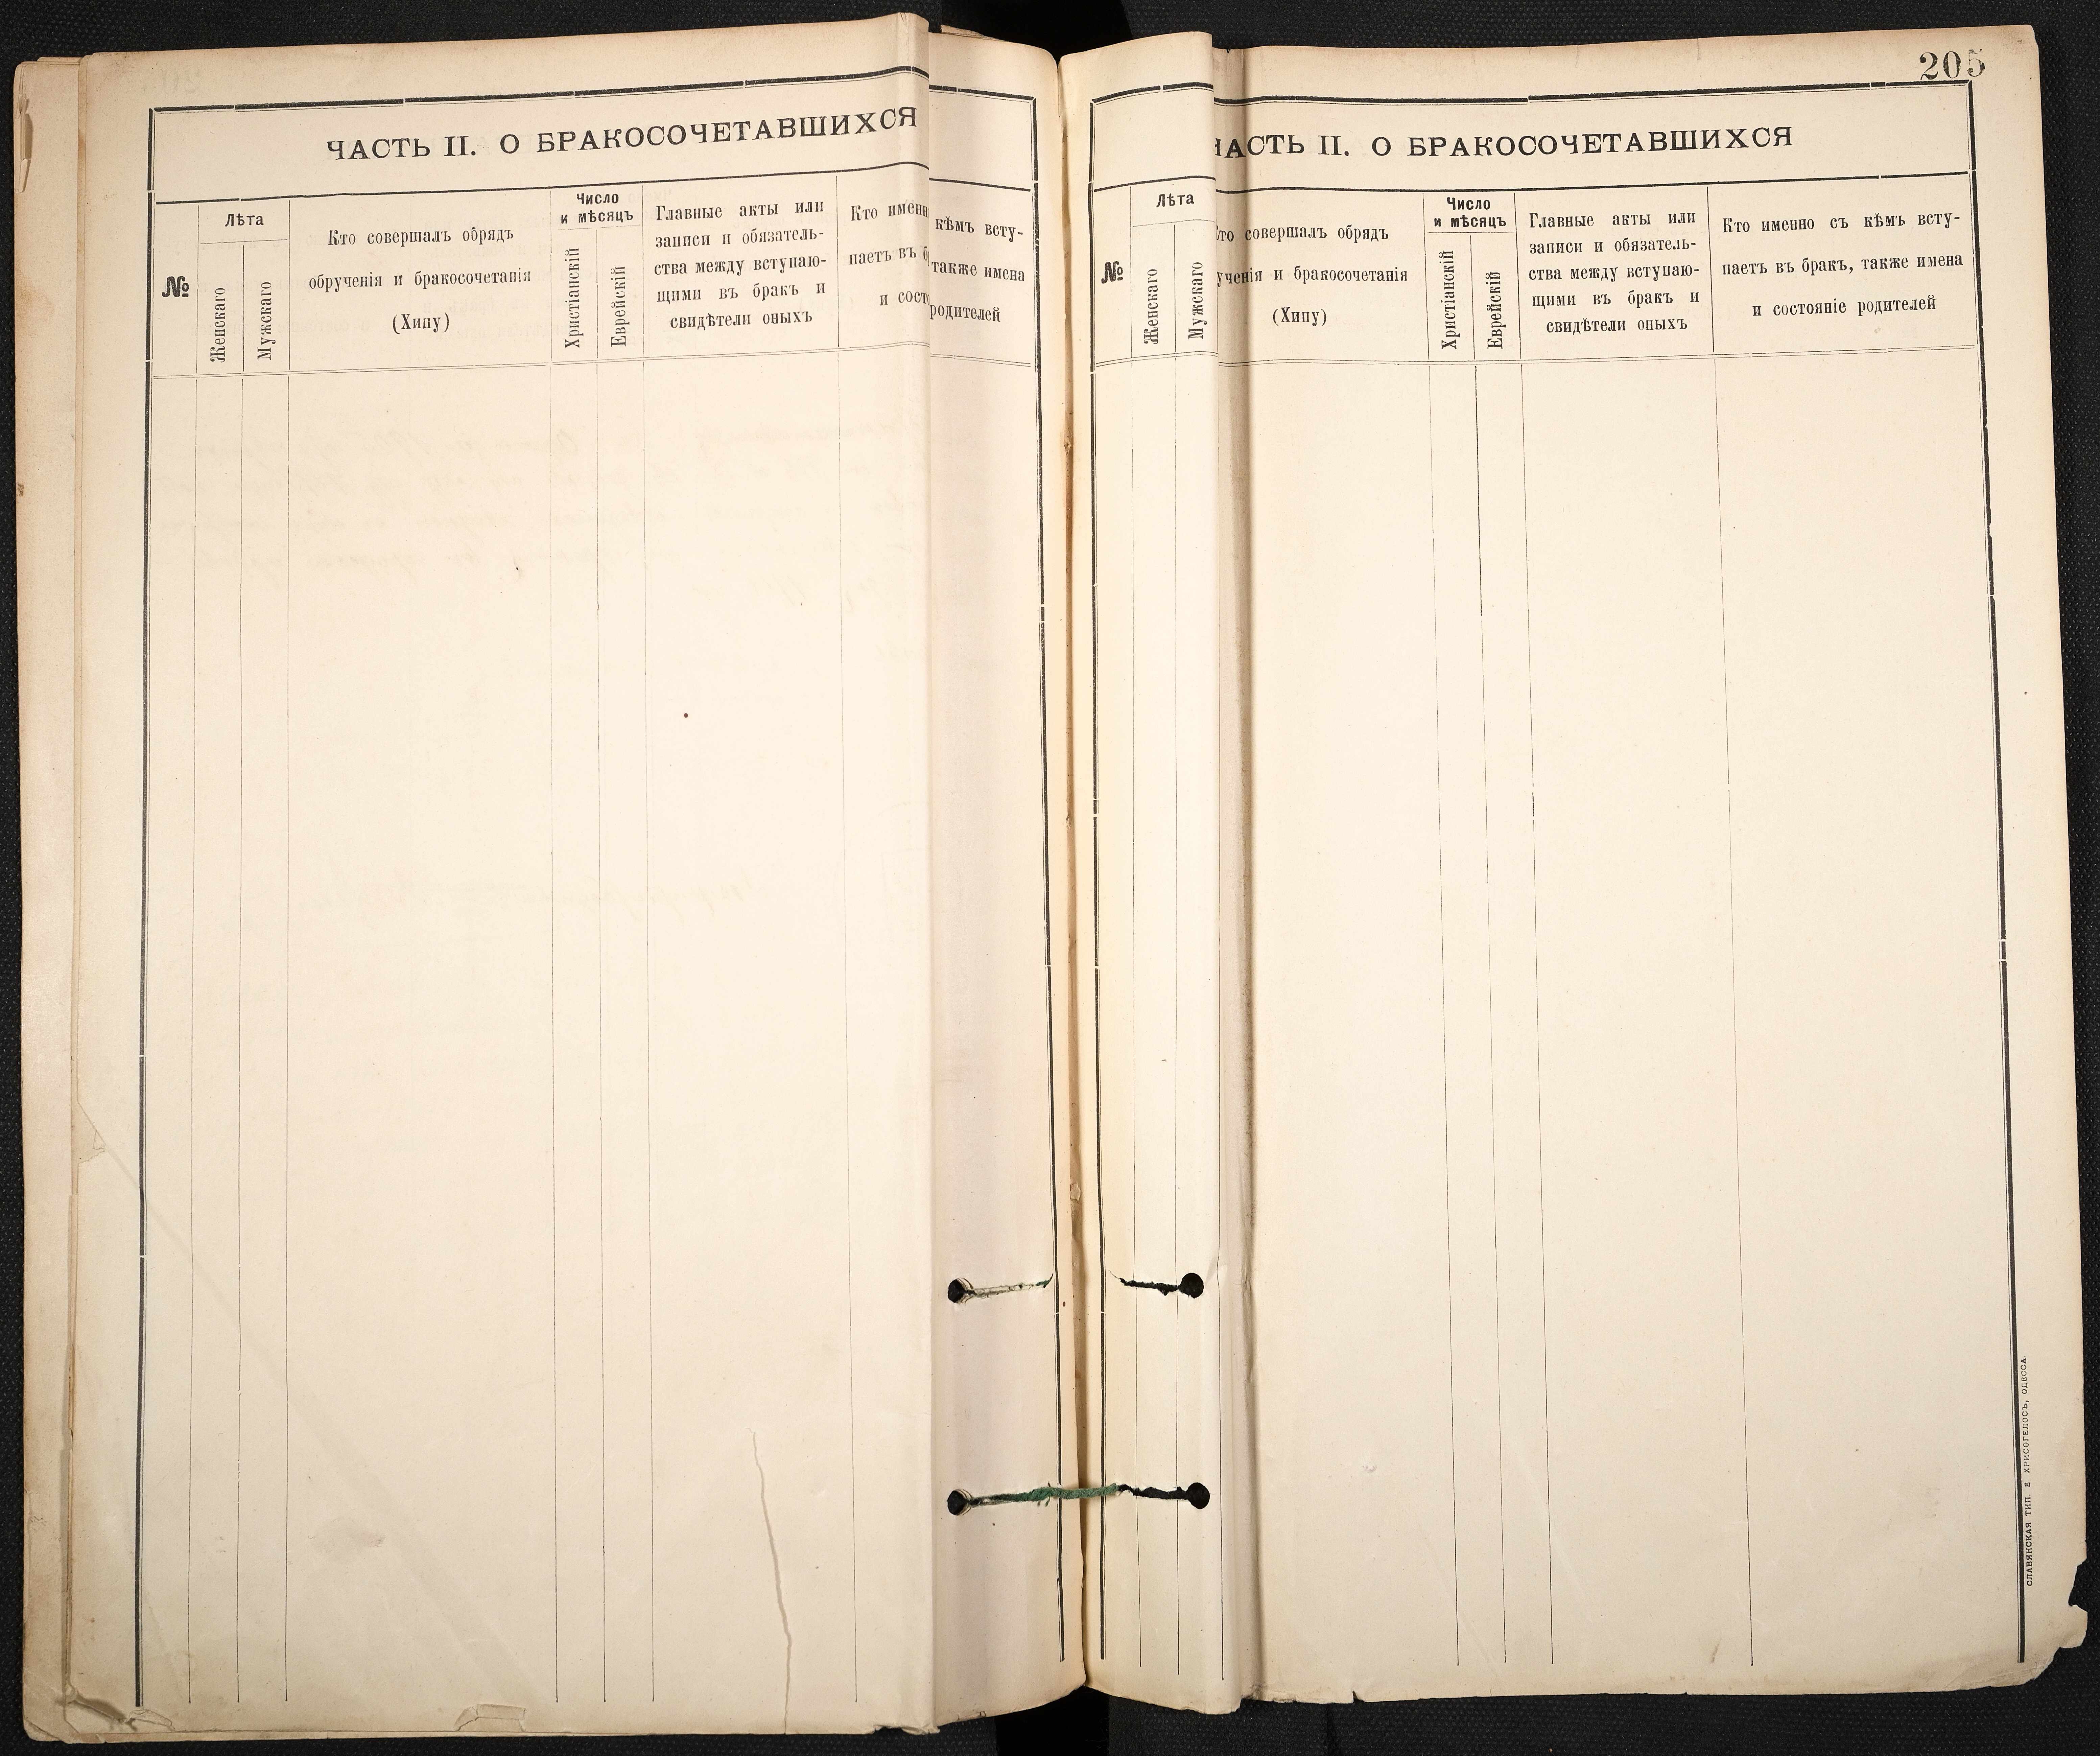 ЧАСТЬ II. О БРАКОСОЧЕТАВШИХСЯ
№
Лѣта
Женскаго
Мужскаго
Кто совершалъ обрядъ
обрученія и бракосочетанія
(Хипу)
Число
и мѣсяцъ
Христіанскій
Еврейскій
Главные акты или
записи и обязатель-
ства между вступаю-
щими въ бракъ и
свидѣтели оныхъ
Кто именн
паетъ въ б
и сост
кѣмъ всту-
также имена
родителей
205
ЧАСТЬ II. О БРАКОСОЧЕТАВШИХСЯ
№
Лѣта
Женскаго
Мужскаго
Кто совершалъ обрядъ
ученія и бракосочетанія
(Хипу)
Число
и мѣсяцъ
Христіанскій
Еврейскій
Главные акты или
записи и обязатель-
ства между вступаю-
щими въ бракъ и
свидѣтели оныхъ
Кто именно съ кѣмъ всту-
паетъ въ бракъ, также имена
и состояніе родителей
СЛАВЯНСКАЯ ТИП. Е ХРИСОГЕЛОСЪ, ОДЕССА.